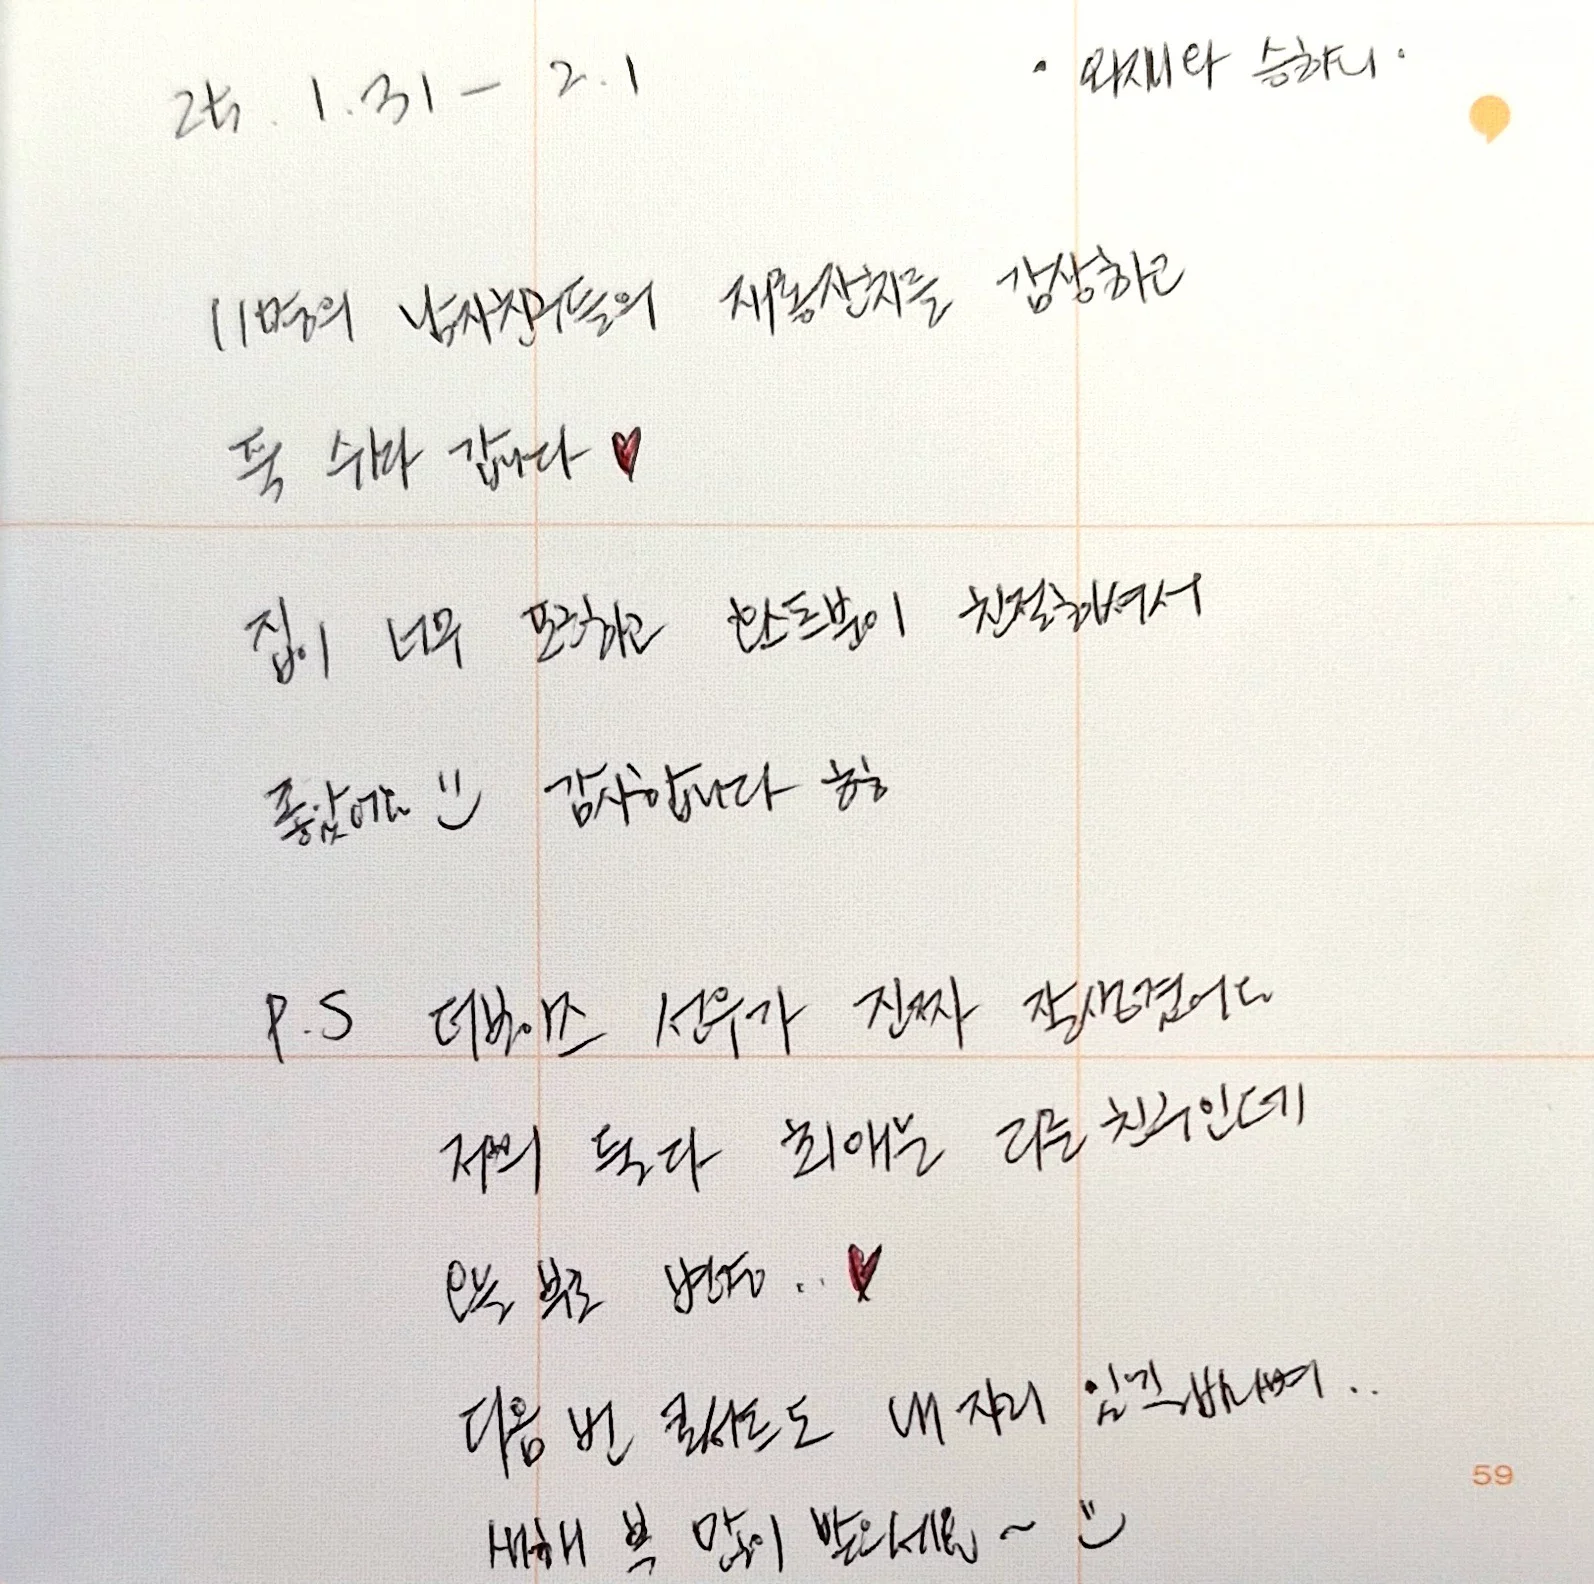 25. 1. 31 - 2. 1
· 와재와 승하니 ·
11명의 남자친구들의 재롱잔치를 감상하고
푹 쉬다 갑니다 ♥
집이 너무 포근하고 호스트분이 친절하셔서
좋았어요 :) 감사합니다 ㅎㅎ
P.S 더보이즈 선우가 진짜 잘생겼어요
저희 둘다 최애는 다른 친구인데
오늘부로 변동.. ♥
다음 번 콘서트도 내 자리 있길 바라며..
새해 복 많이 받으세요~ :)
59